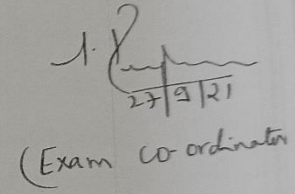 27/9/21
(Exam co-ordinator